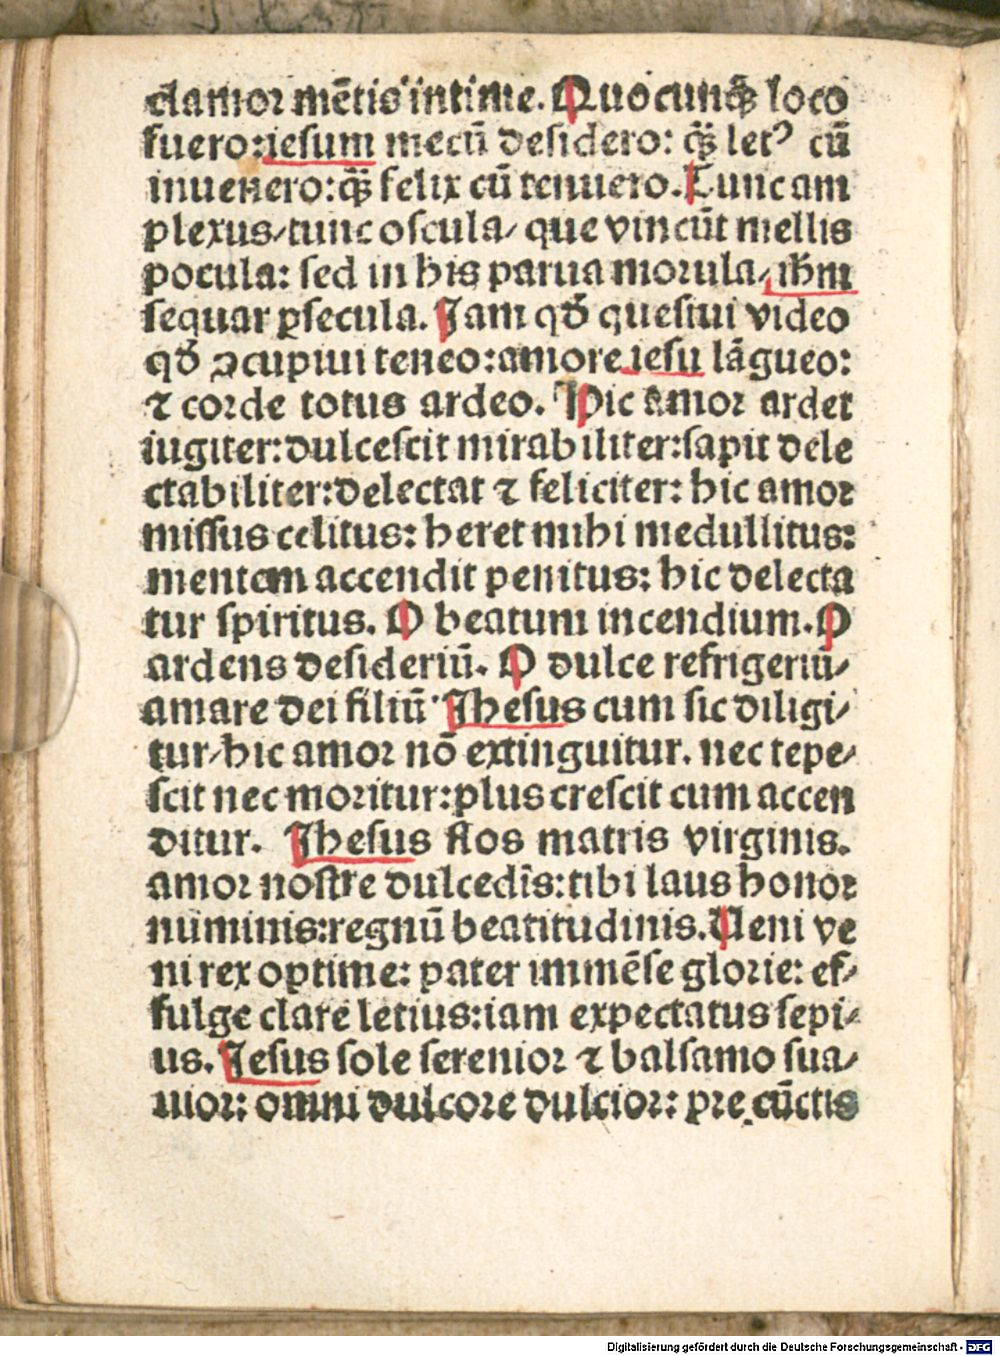 clamor mētis intime. Quocunqꝫ loco
fuero: iesum mecū desidero: qꝫ letꝰ cū
inuenero: qꝫ felix cū tenuero. Tunc am
plexus/ tunc oscula/ que vincūt mellis
pocula: sed in his parua morula/ ihm
sequar ꝑsecula. Jam qđ quesiui video
qđ ꝯcupiui teneo: amore iesu lāgueo:
⁊ corde totus ardeo. Hic amor ardet
iugiter: dulcescit mirabiliter: sapit dele
ctabiliter: delectat ⁊ feliciter: hic amor
missus celitus: heret mihi medullitus:
mentem accendit penitus: hic delecta
tur spiritus. O beatum incendium. O
ardens desideriū. O dulce refrigeriū/
amare dei filiū Jhesus cum sic diligi/
tur/ hic amor nō extinguitur. nec tepe/
scit nec moritur: plus crescit cum accen
ditur. Jhesus flos matris virginis.
amor nostre dulcedīs: tibi laus honor
numinis: regnū beatitudinis. Ueni ve
ni rex optime: pater immēse glorie: ef/
fulge clare letius: iam expectatus sepi/
us. Jesus sole serenior ⁊ balsamo sua/
uior: omni dulcore dulcior: pre cūctis
Digitalisierung gefördert durch die Deutsche Forschungsgemeinschaft - DFG